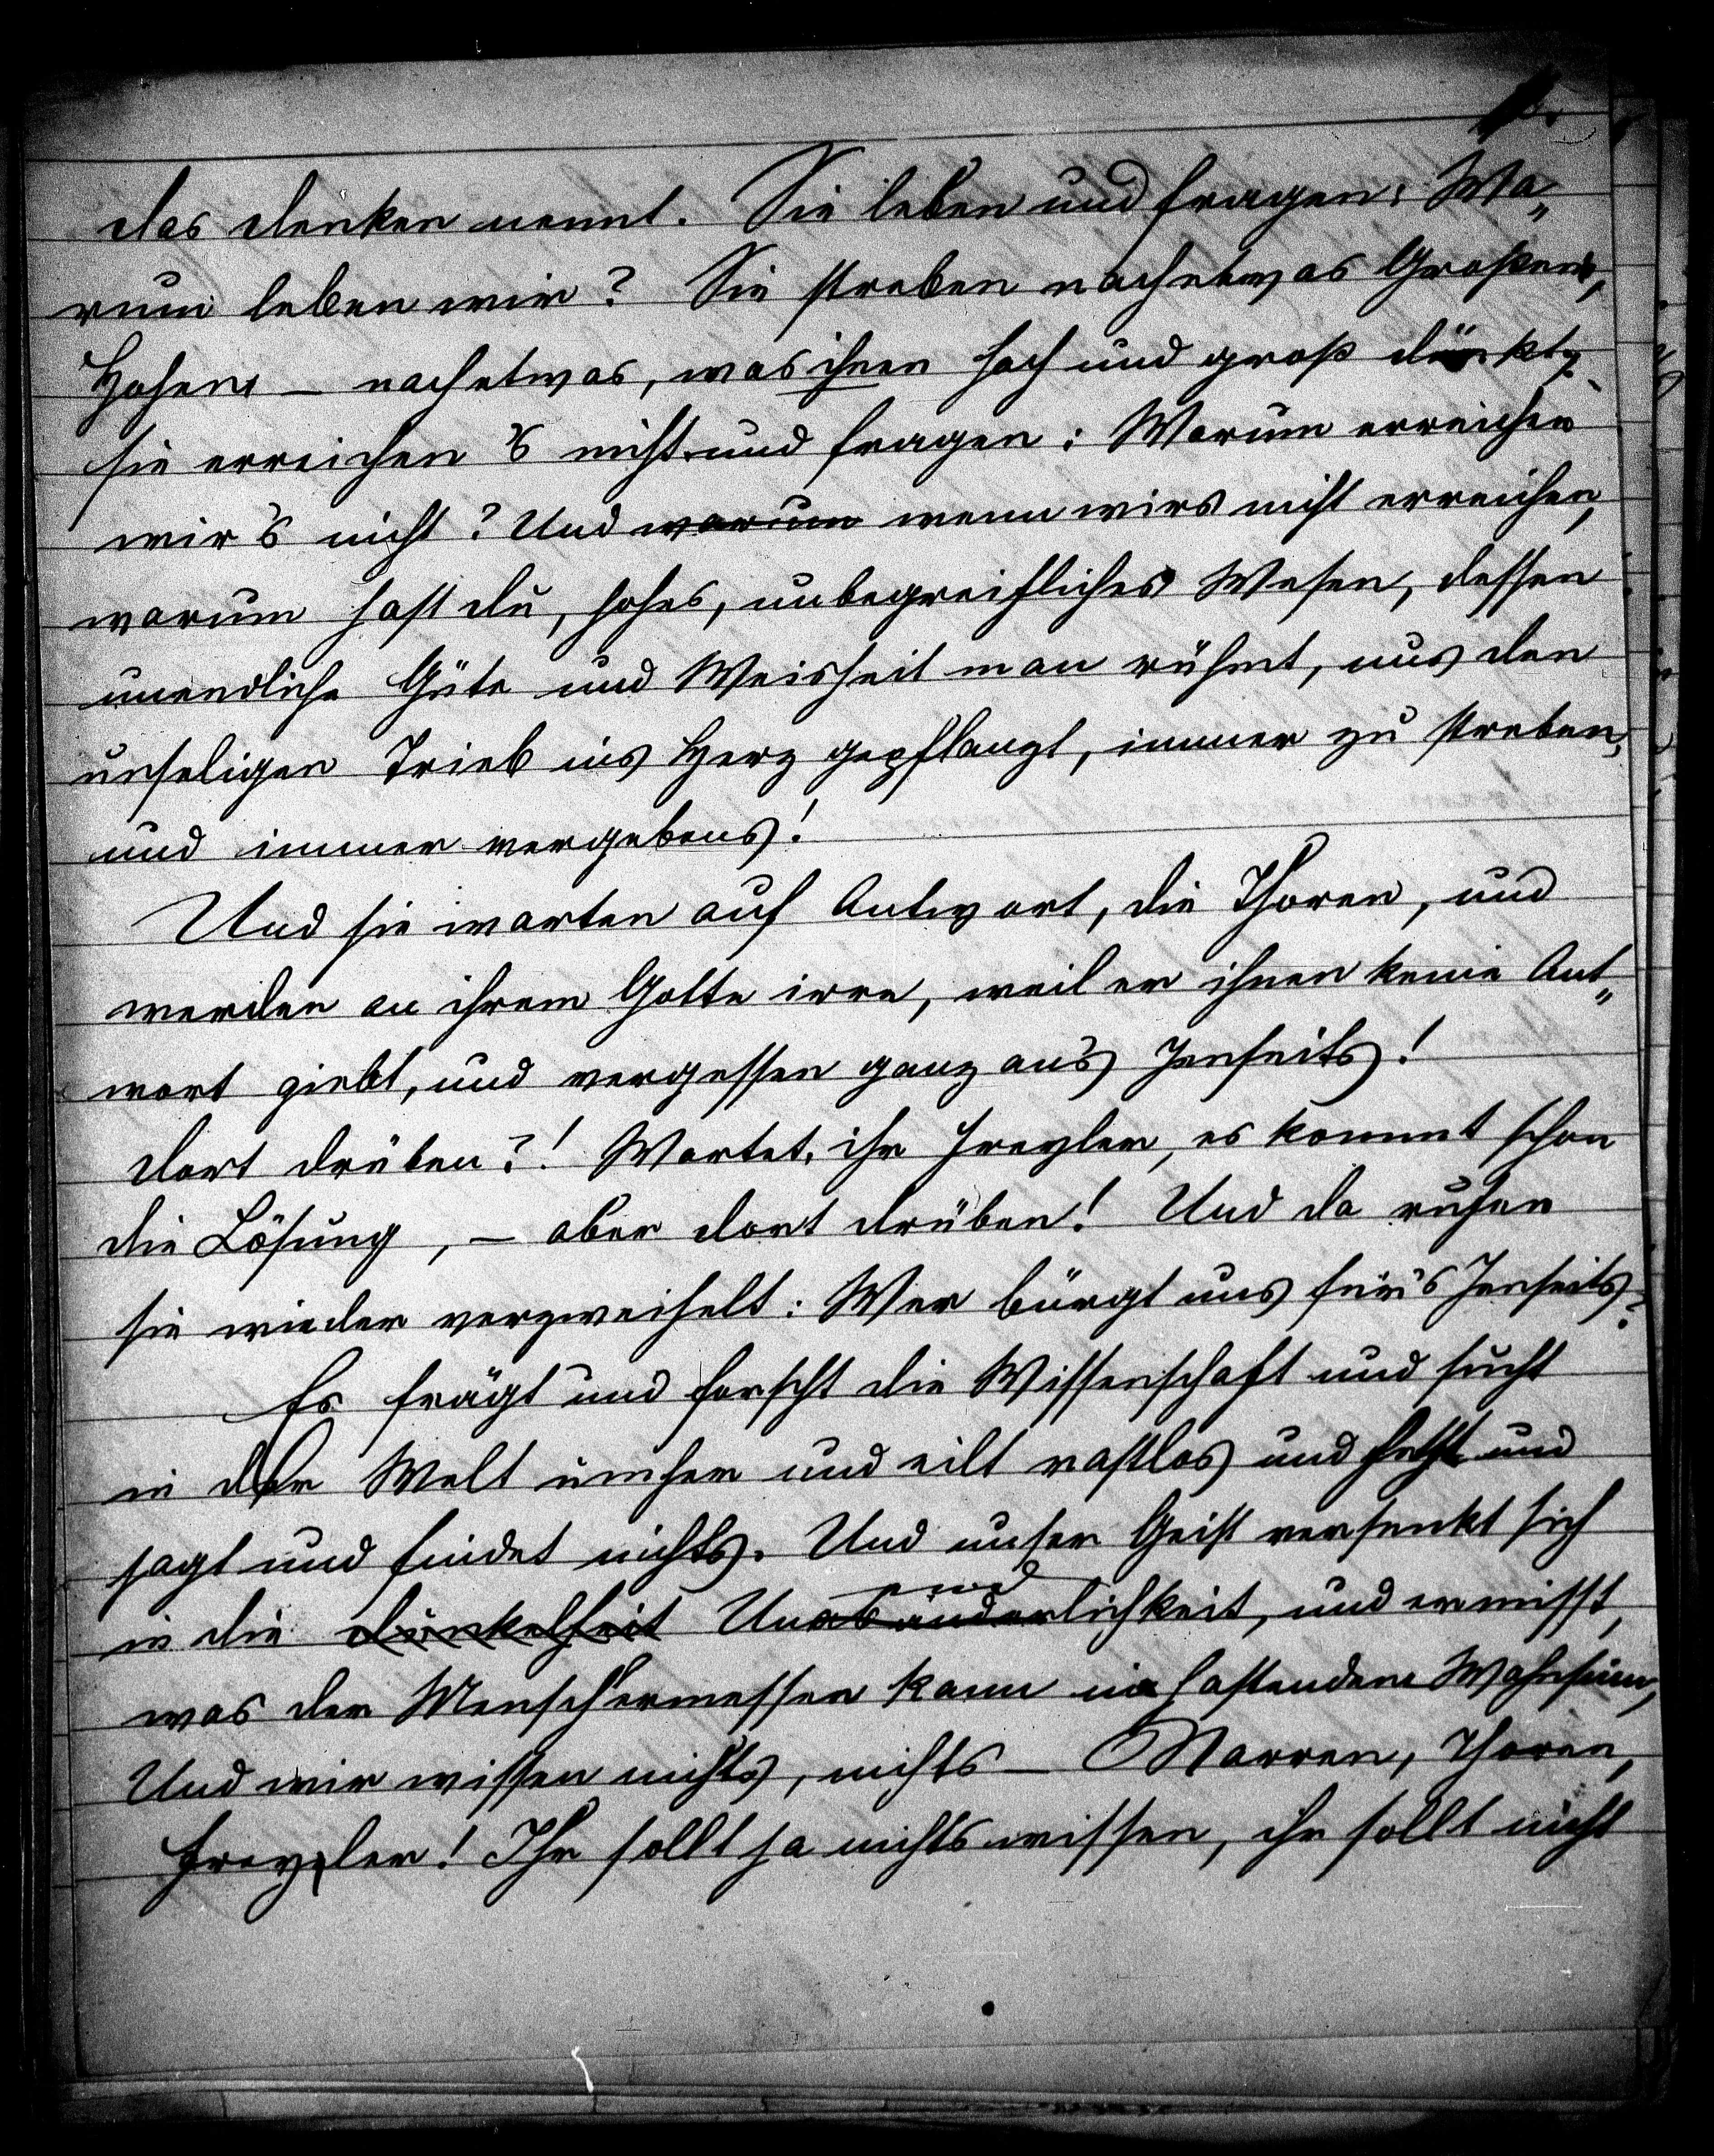 das denken nennt. Sie leben und fragen: Wa„
rum leben wir? Sie streben nach etwas Großem,
Hohem – nach etwas, was ihnen hoch und groß dünkt,
sie erreichen 's nicht und fragen: Warum erreichen
wir's nicht? Und warum wenn wirs nicht erreichen,
warum hast du, hohes, unbegreifliches Wesen, dessen
unendliche Güte und Weisheit man rühmt, uns den
unseligen Trieb ins Herz gepflanzt, immer zu streben,
und immer vergebens!
Und sie warten auf Antwort, die Thoren, und
werden an ihrem Gotte irre, weil er ihnen keine Ant„
wort giebt, und vergessen ganz an's Jenseits!
dort drüben?! Wartet, ihr Frevler, es kommt schon
die Lösung, – aber dort drüben! Und da rufen
sie wieder verzweifelt: Wer bürgt uns für's Jenseits?
Es frägt und forscht die Wissenschaft und sucht
in der Welt umher und eilt rastlos und hetzt und
jagt und findet nichts. Und unser Geist versenkt sich
end
in die Dunkelheit Unabänderlichkeit, und ermisst,
was der Mensch ermessen kann in hastendem Wahnsinn,
Und wir wissen nichts, nichts – Narren, Thoren,
Frevler! Ihr sollt ja nichts wissen, ihr sollt nicht